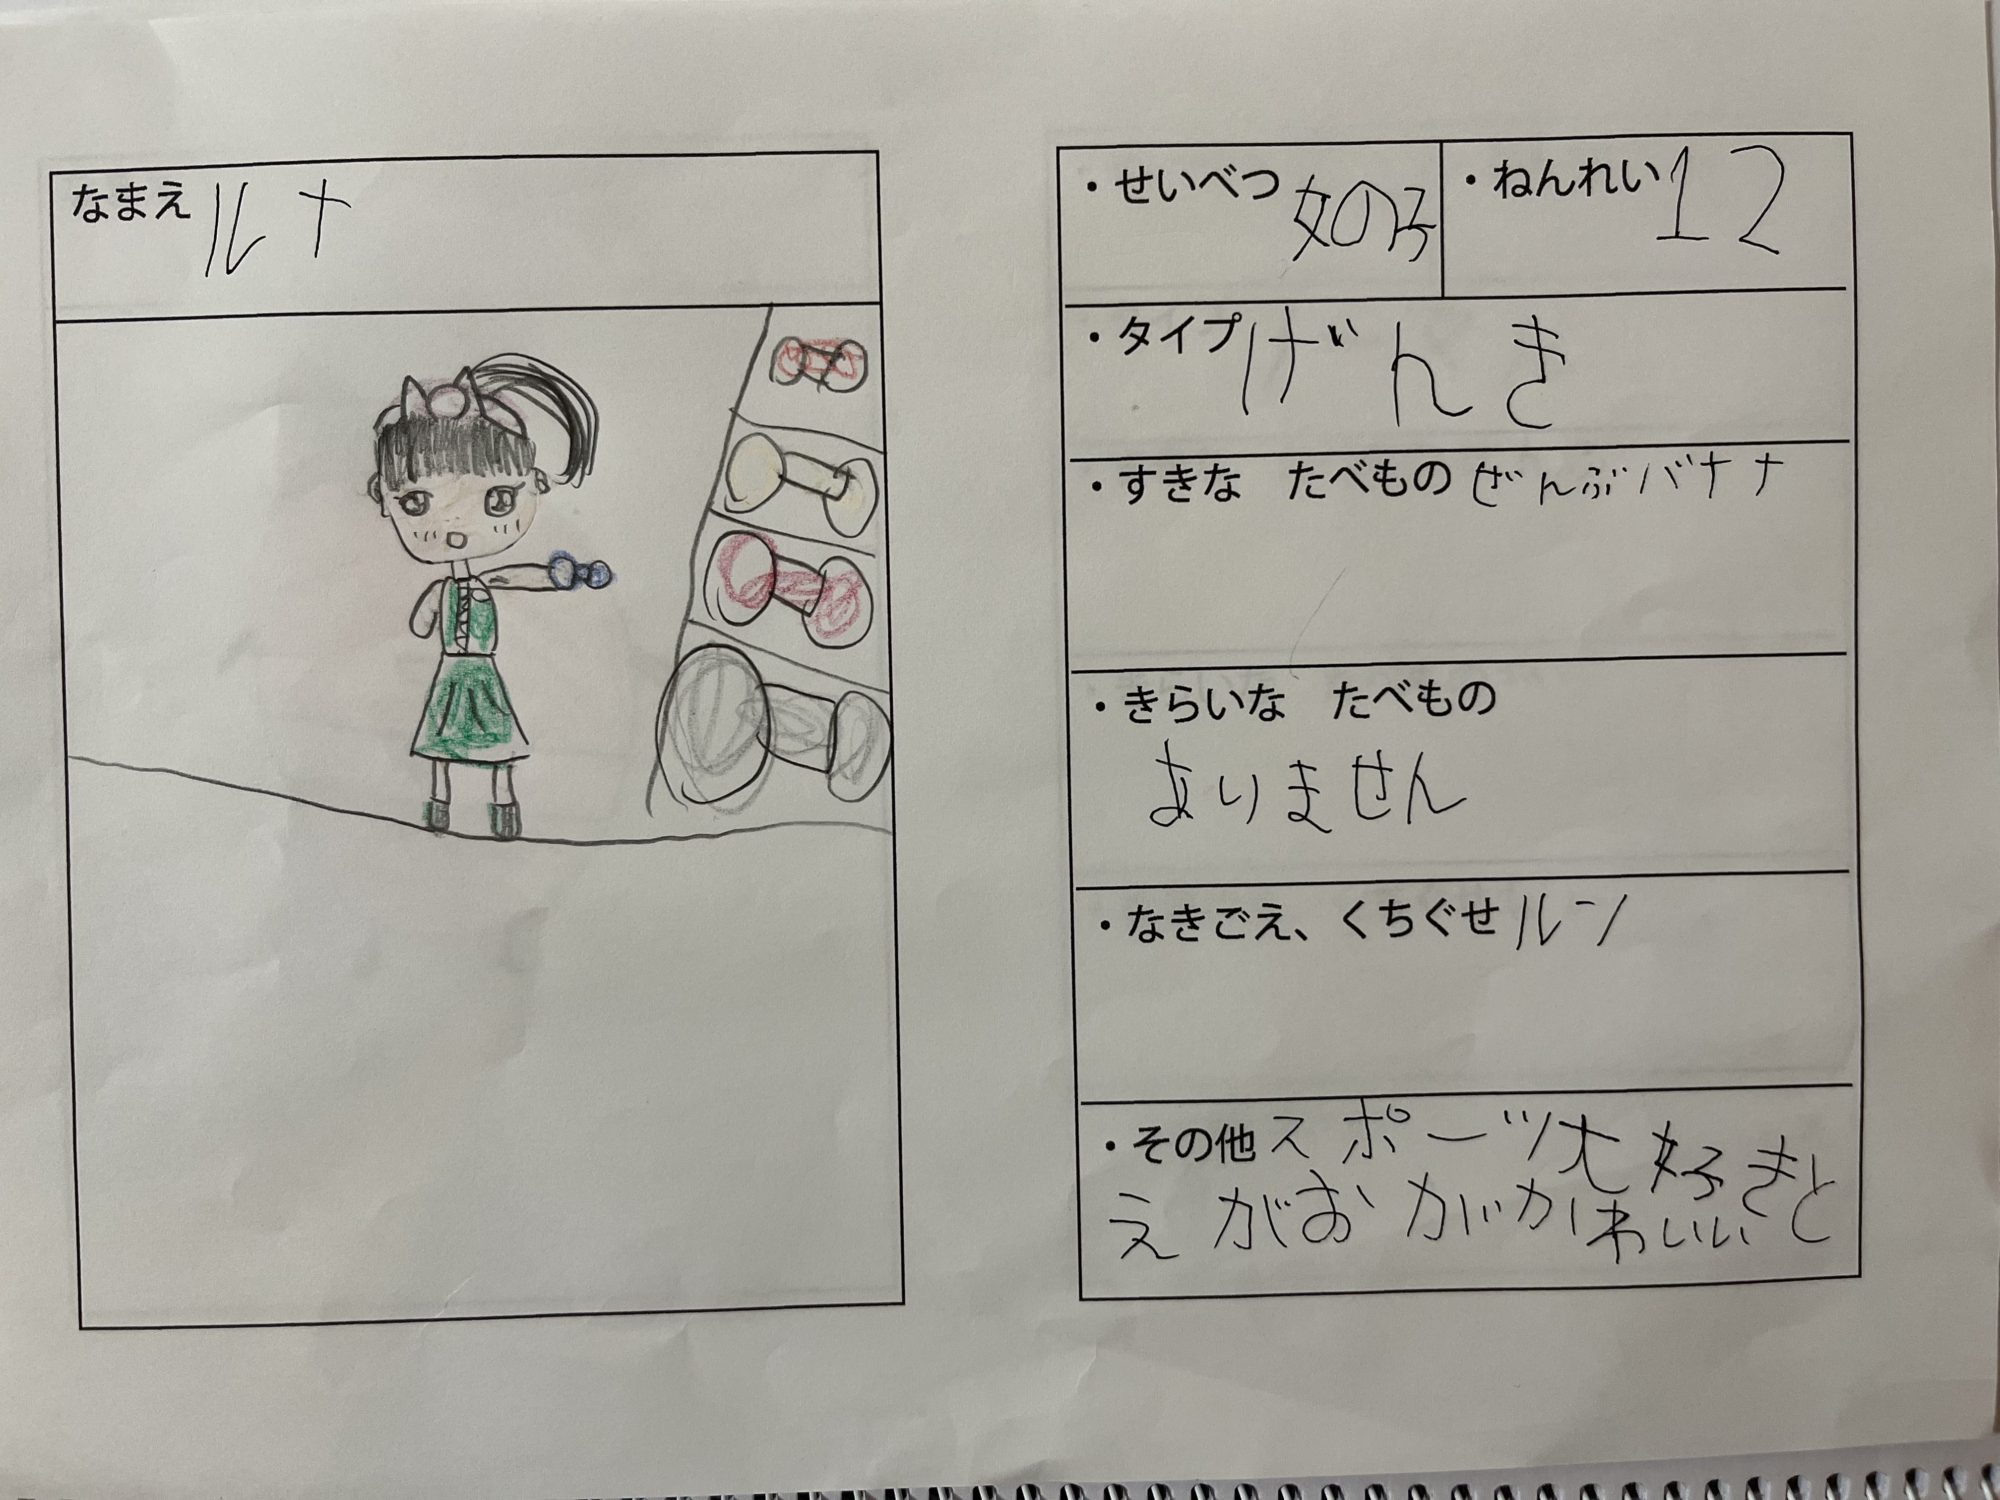 なまえ ルナ
・せいべつ 女の子
・ねんれい 12
・タイプ げんき
・すきな たべもの ぜんぶバナナ
・きらいな たべもの
ありません
・なきごえ、くちぐせ ルン
・その他 スポーツ大好きと
えがおがかわいい